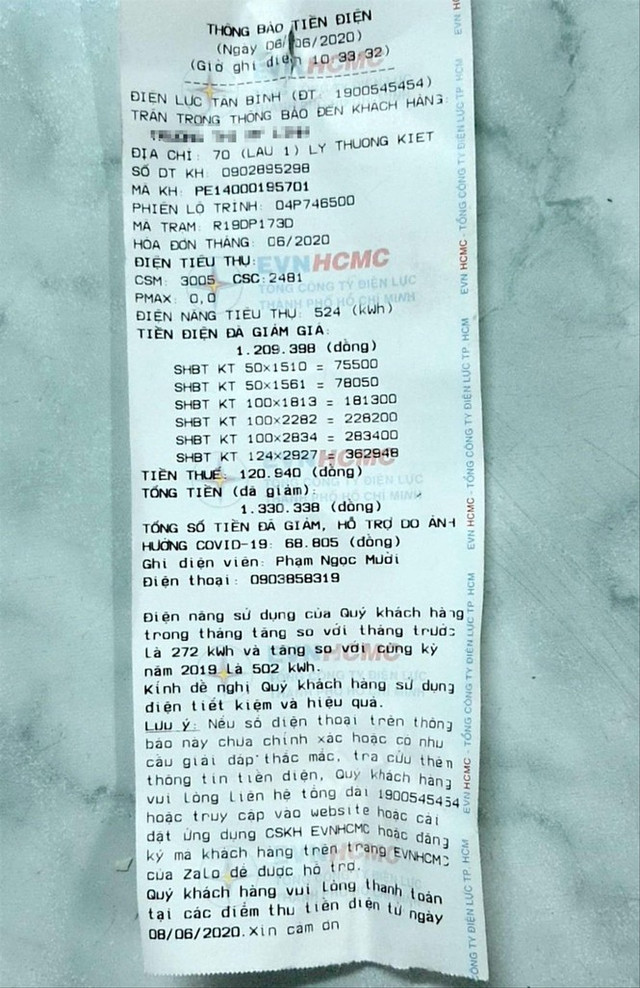 THÔNG BÁO TIỀN ĐIỆN
(Ngày 06/06/2020)
(Giờ ghi điện 10:33:32)
ĐIỆN LỰC TÂN BÌNH (ĐT: 1900545454)
TRÂN TRỌNG THÔNG BÁO ĐẾN KHÁCH HÀNG:
ĐỊA CHỈ: 70 (LẦU 1) LÝ THƯỜNG KIỆT
SỐ ĐT KH: 0902895298
MÃ KH: PE14000195701
PHIÊN LỘ TRÌNH: 04P746500
MÃ TRẠM: R19DP173D
HÓA ĐƠN THÁNG: 06/2020
ĐIỆN TIÊU THỤ:
CSM: 3005 CSC:2481
PMAX: 0,0
ĐIỆN NĂNG TIÊU THỤ: 524 (kWh)
TIỀN ĐIỆN ĐÃ GIẢM GIÁ:
1.209.398 (đồng)
SHBT KT 50x1510 = 75500
SHBT KT 50x1561 = 78050
SHBT KT 100x1813 = 181300
SHBT KT 100x2282 = 228200
SHBT KT 100x2834 = 283400
SHBT KT 124x2927 = 362948
TIỀN THUẾ: 120.940 (đồng)
TỔNG TIỀN (đã giảm):
1.330.338 (đồng)
TỔNG SỐ TIỀN ĐÃ GIẢM, HỖ TRỢ DO ẢNH
HƯỞNG COVID-19: 68.805 (đồng)
Ghi điện viên: Phạm Ngọc Mười
Điện thoại: 0903858319
Điện năng sử dụng của Quý khách hàng
trong tháng tăng so với tháng trước
là 272 kWh và tăng so với cùng kỳ
năm 2019 là 502 kWh.
Kính đề nghị Quý khách hàng sử dụng
điện tiết kiệm và hiệu quả.
Lưu ý: Nếu số điện thoại trên thông
báo này chưa chính xác hoặc có nhu
cầu giải đáp thắc mắc, tra cứu thêm
thông tin tiền điện, Quý khách hàng
vui lòng liên hệ tổng đài 1900545454
hoặc truy cập vào website hoặc cài
đặt ứng dụng CSKH EVNHCMC hoặc đăng
ký mã khách hàng trên trang EVNHCMC
của Zalo để được hỗ trợ.
Quý khách hàng vui lòng thanh toán
tại các điểm thu tiền điện từ ngày
08/06/2020.Xin cảm ơn
EVNHCMC
TỔNG CÔNG TY ĐIỆN LỰC
THÀNH PHỐ HỒ CHÍ MINH
EVN HCMC - TỔNG CÔNG TY ĐIỆN LỰC TP. HCM